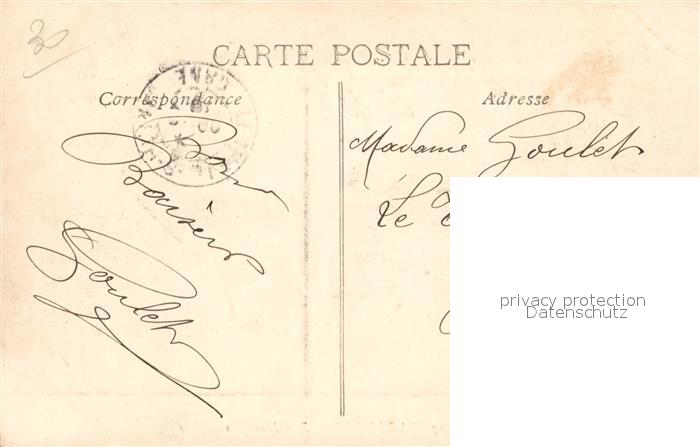 30
CARTE POSTALE
Correspondance
Bons
Baisers
Goulet
Adresse
Madame Goulet
Le
privacy protection
Datenschutz